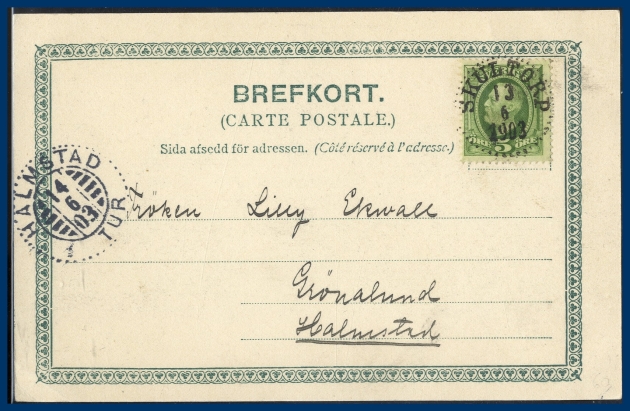 BREFKORT.
(CARTE POSTALE.)
Sida afsedd för adressen. (Côté réservé à l'adresse.)
SKULTORP
13
6
1903
5
HALMSTAD
14
6
03
TUR
1
Fröken Lilly Ekwall
Grönalund
Halmstad